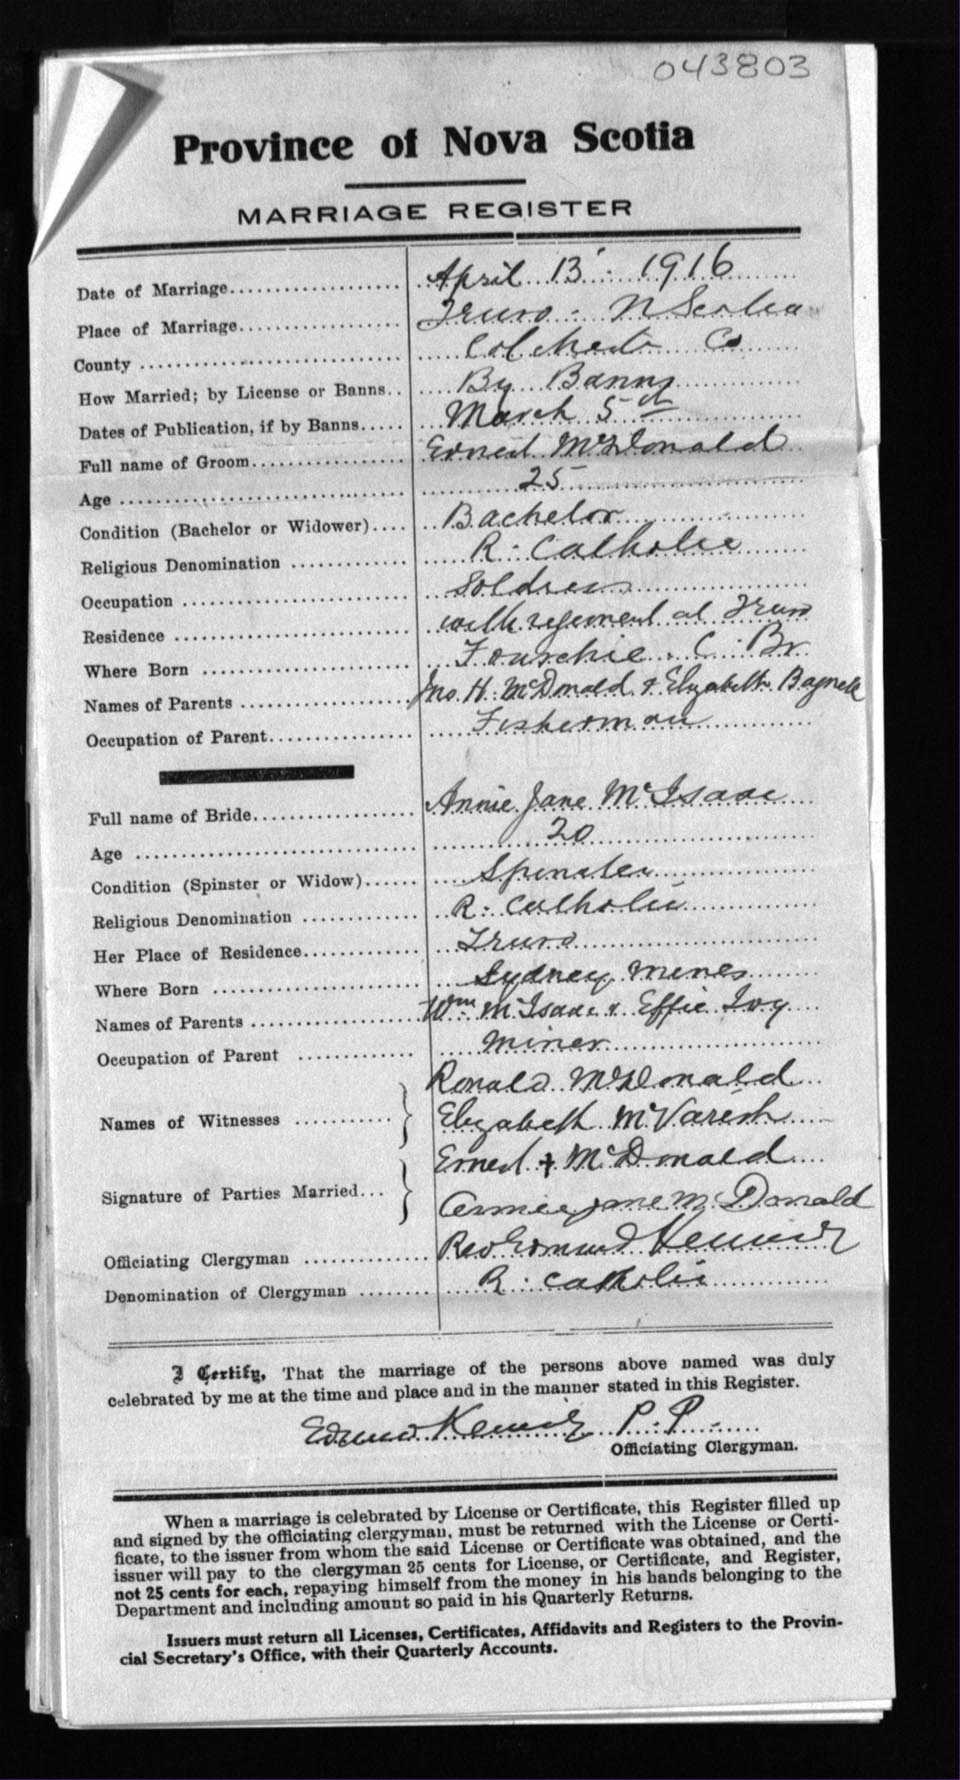 043803
Province of Nova Scotia
MARRIAGE REGISTER
Date of Marriage April 13 1916
Place of Marriage Truro N Scotia
County Colchester Co
How Married; by License or Banns By Banns
Dates of Publication, if by Banns March 5th
Full name of Groom Ernest McDonald
Age 25
Condition (Bachelor or Widower) Bachelor
Religious Denomination R. Catholic
Occupation Soldier
Residence with regiment at Truro
Where Born Fourchie C. Br.
Names of Parents Jno. H. McDonald & Elizabeth Bagnell
Occupation of Parent Fisherman
Full name of Bride Annie Jane McIsaac
Age 20
Condition (Spinster or Widow) Spinster
Religious Denomination R. Catholic
Her Place of Residence Truro
Where Born Sydney Mines
Names of Parents Wm McIsaac & Effie Ivy
Occupation of Parent Miner
Names of Witnesses Ronald McDonald
Elizabeth McVarish
Signature of Parties Married Ernest + McDonald
Annie Jane McDonald
Officiating Clergyman Rev Edmund
Denomination of Clergyman R. Catholic
I Certify, That the marriage of the persons above named was duly
celebrated by me at the time and place and in the manner stated in this Register.
Edmund P. P.
Officiating Clergyman.
When a marriage is celebrated by License or Certificate, this Register filled up
and signed by the officiating clergyman, must be returned with the License or Certi-
ficate, to the issuer from whom the said License or Certificate was obtained, and the
issuer will pay to the clergyman 25 cents for License, or Certificate, and Register,
not 25 cents for each, repaying himself from the money in his hands belonging to the
Department and including amount so paid in his Quarterly Returns.
Issuers must return all Licenses, Certificates, Affidavits and Registers to the Provin-
cial Secretary's Office, with their Quarterly Accounts.